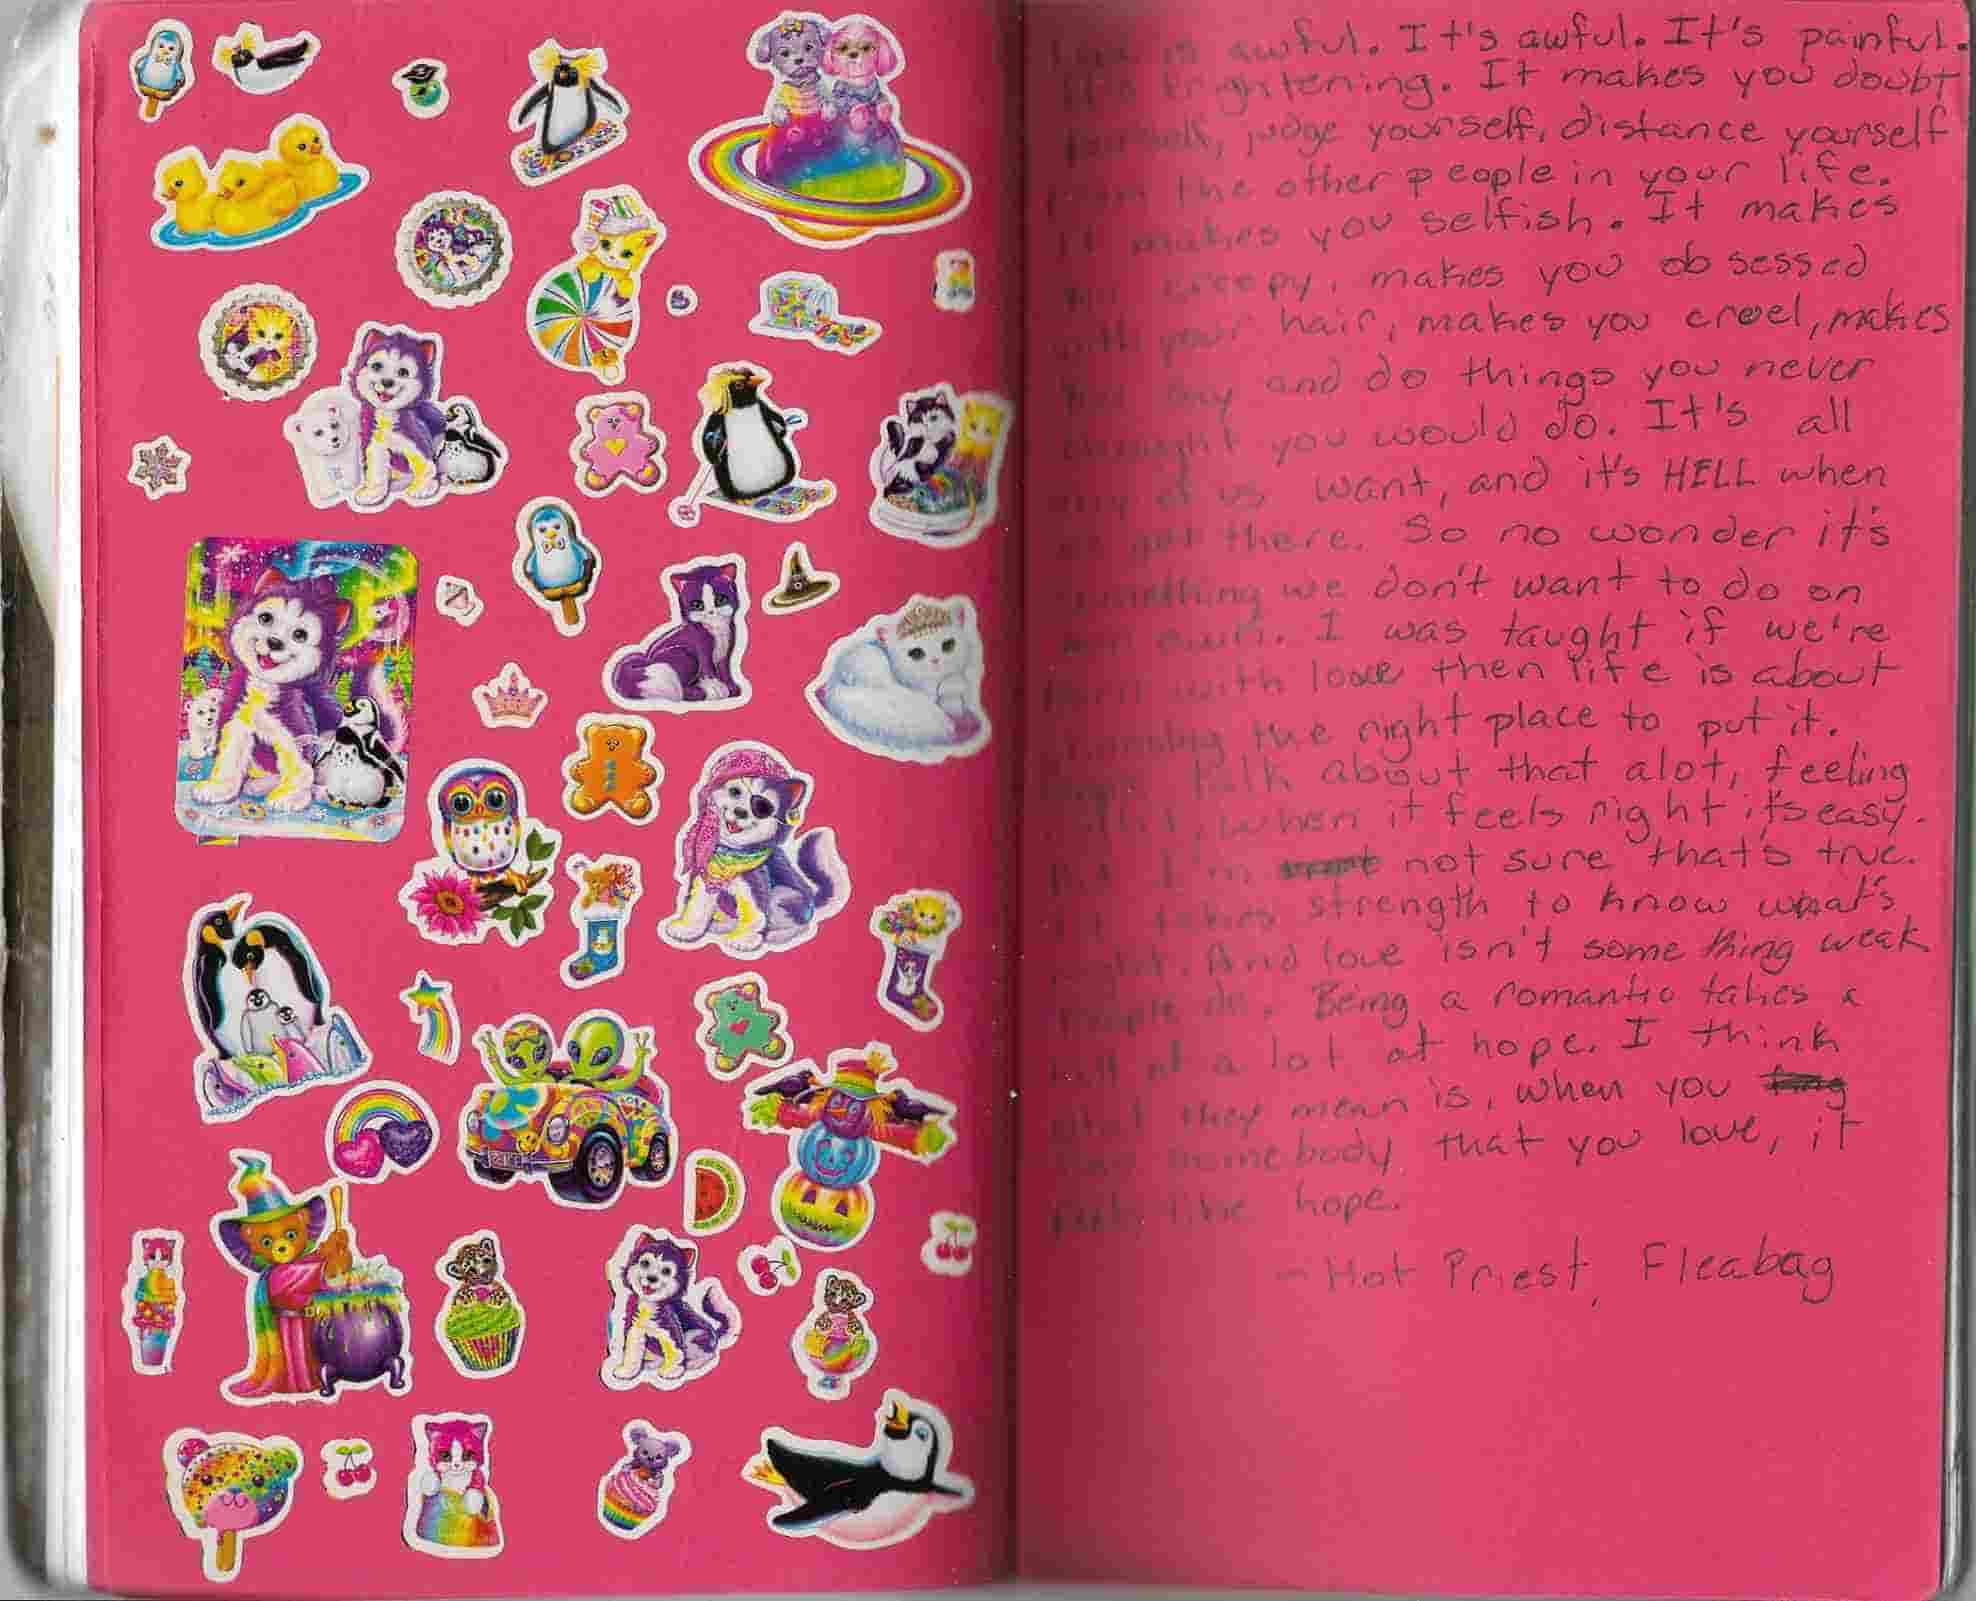 Love is awful. It's awful. It's painful.
It's frightening. It makes you doubt
yourself, judge yourself, distance yourself
from the other people in your life.
It makes you selfish. It makes
you creepy, makes you obsessed
with your hair, makes you cruel, makes
you say and do things you never
thought you would do. It's all
any of us want, and it's HELL when
we get there. So no wonder it's
something we don't want to do on
our own. I was taught if we're
born with love then life is about
choosing the right place to put it.
People talk about that alot, feeling
right, when it feels right it's easy.
But I'm not sure that's true.
It takes strength to know what's
right. And love isn't something weak
people do. Being a romantic takes a
hell of a lot of hope. I think
what they mean is, when you
find somebody that you love, it
feels like hope.
- Hot Priest, Fleabag